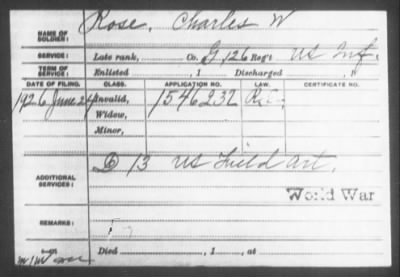 NAME OF SOLDIER: Rose, Charles W
SERVICE: Late rank, Co. G, 126 Reg't US Inf.
TERM OF SERVICE: Enlisted , 1 Discharged , 1
DATE OF FILING. CLASS. APPLICATION NO. LAW. CERTIFICATE NO.
1926 June 24 Invalid, 1546232
Widow,
Minor,
ADDITIONAL SERVICES: 13 US Field Art.
World War
REMARKS:
Died , 1 , at